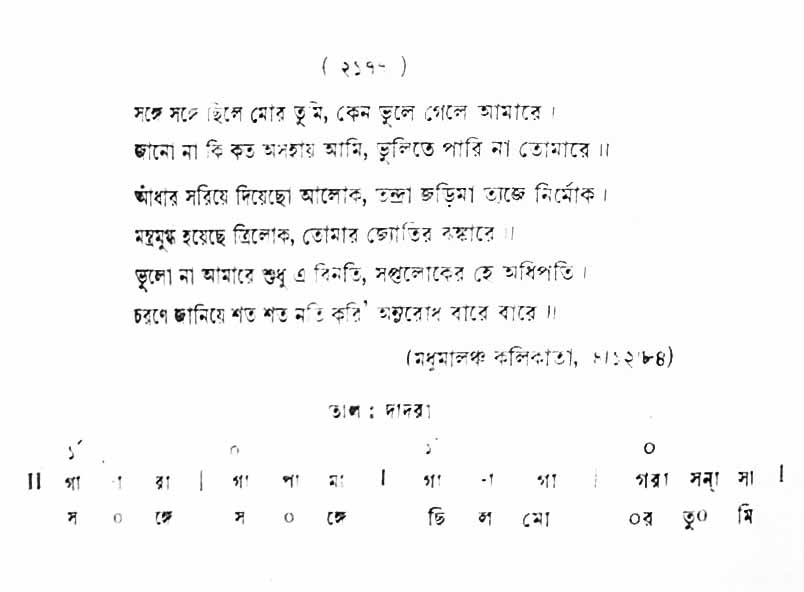 সঙ্গে সঙ্গে ছিলে মোর তুমি, কেন ভুলে গেলে আমারে ।
জানো না কি কত অসহায় আমি, ভুলিতে পারি না তোমারে ॥
আঁধার সরিয়ে দিয়েছো আলোক, তন্দ্রা জড়িমা ত্যজে নির্মোক ।
মন্ত্রমুগ্ধ হয়েছে ত্রিলোক, তোমার জ্যোতির ঝঙ্কারে ॥
ভুলো না আমারে শুধু এ বিনতি, সপ্তলোকের হে অধিপতি ।
চরণে জানিয়ে শত শত নতি করি' অনুরোধ বারে বারে ॥
(মধুমালঞ্চ কলিকাতা,
তাল : দাদরা
১´ ০ ১´ ০
II গা -া রা | গা পা মা | গা -া গা | গরা সন্ সা |
স ০ ঙ্গে স ০ ঙ্গে ছি ল মো ০র তু০ মি